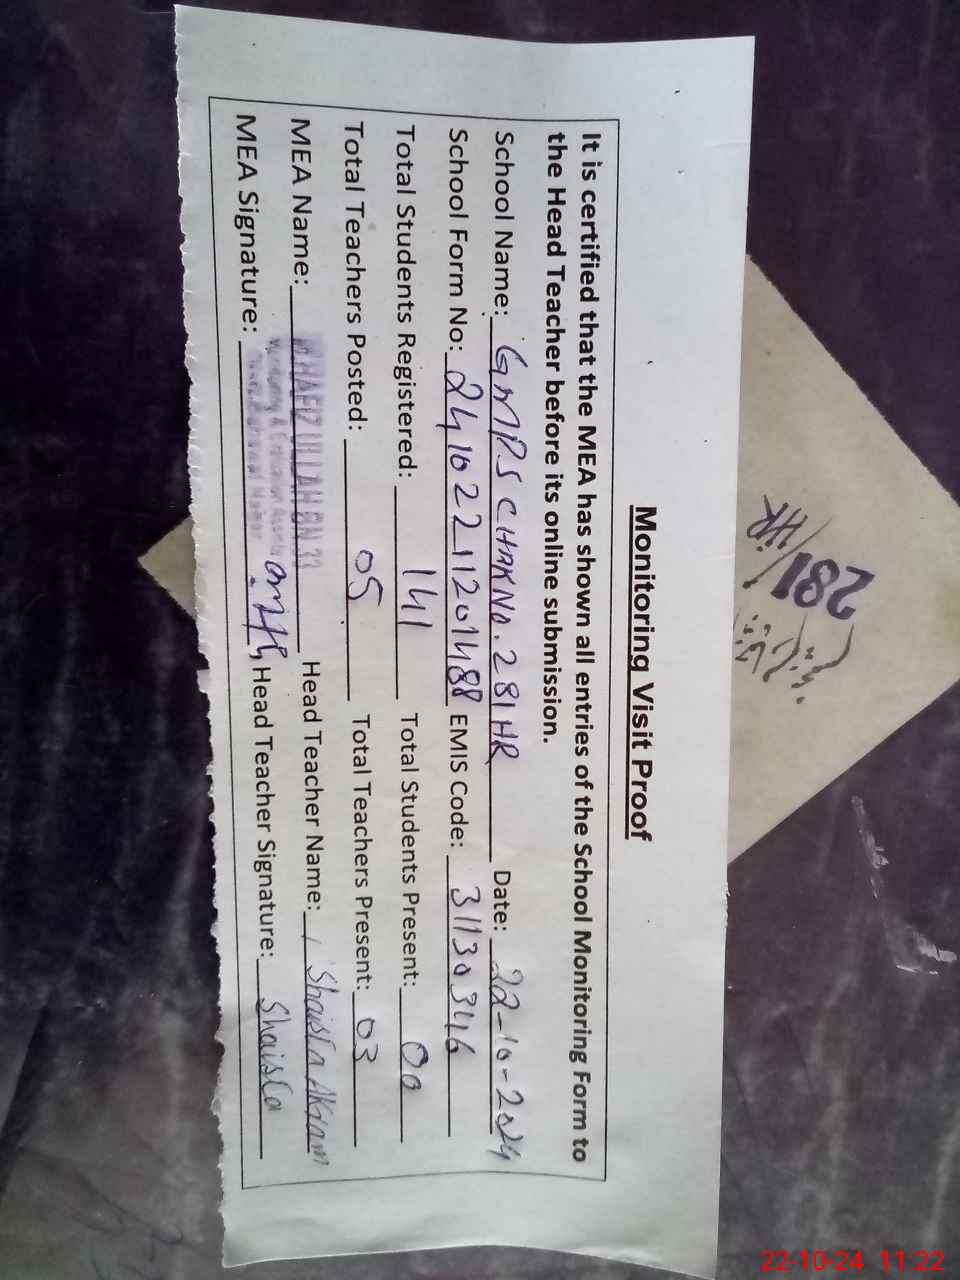 Monitoring Visit Proof
It is certified that the MEA has shown all entries of the School Monitoring Form to
the Head Teacher before its online submission.
School Name: GMPS CHAK No. 281HR Date: 22-10-2024
School Form No: 24102211201488 EMIS Code: 31130346
Total Students Registered: 141 Total Students Present: 00
Total Teachers Posted: 05 Total Teachers Present: 03
MEA Name: HAFIZ ULLAH BN 33 Head Teacher Name: Shaista Akram
Monitoring & Evaluation Assistant
MEA Signature: Head Teacher Signature: Shaista
281/HR
22-10-24 11:22